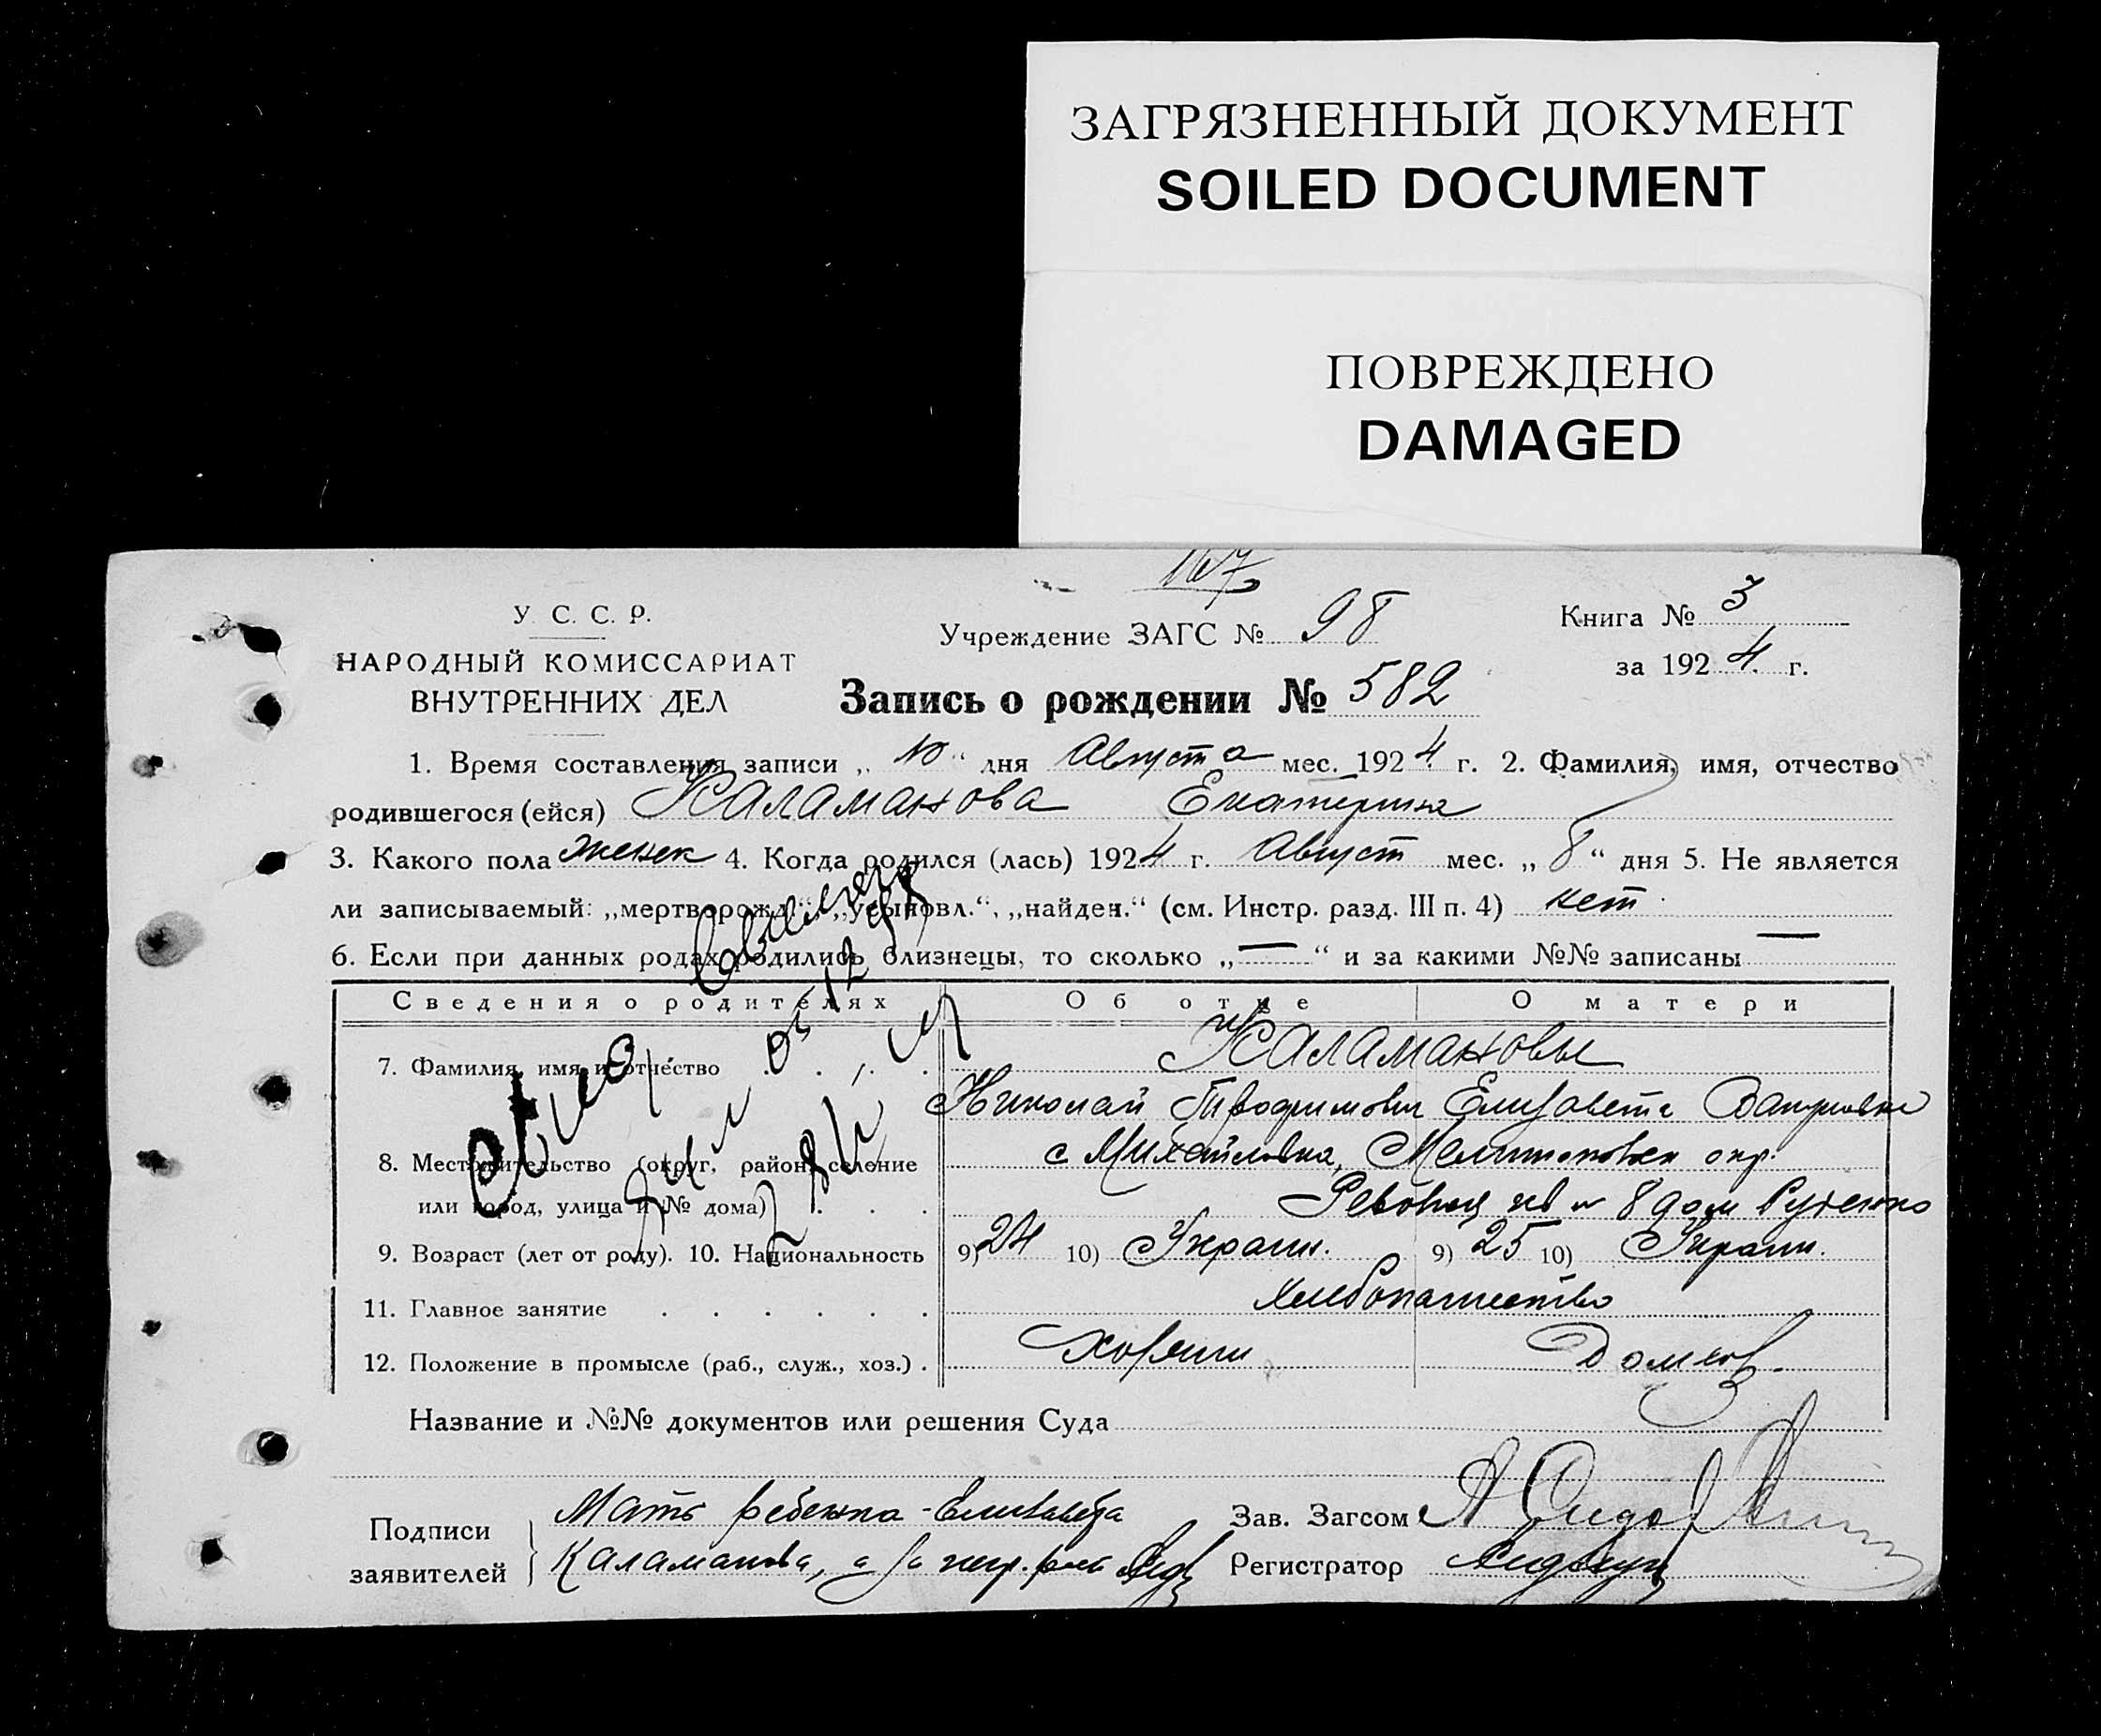 ЗАГРЯЗНЕННЫЙ ДОКУМЕНТ
SOILED DOCUMENT
ПОВРЕЖДЕНО
DAMAGED
167
У. С. С. Р.
НАРОДНЫЙ КОМИССАРИАТ
ВНУТРЕННИХ ДЕЛ
Учреждение ЗАГС № 98
Книга № 3
за 1924 г.
Запись о рождении № 582
1. Время составления записи „10“ дня Августа мес. 1924 г. 2. Фамилия, имя, отчество
родившегося (ейся) Каламанова Екатерина
3. Какого пола женск 4. Когда родился (лась) 1924 г. Август мес. „8“ дня 5. Не является
ли записываемый: „мертворожд.“, „усыновл.“, „найден.“ (см. Инстр. разд. III п. 4) нет
6. Если при данных родах родились близнецы, то сколько „—“ и за какими №№ записаны —
Сведения о родителях Об отце О матери
7. Фамилия, имя и отчество Каламановы
Николай Трофимович Елизавета
8. Местожительство (округ, район, селение с Михайловка, Мелитопольск окр.
или город, улица и № дома) 8 дом Руденко
9. Возраст (лет от роду). 10. Национальность 9) 24 10) Украин. 9) 25 10) Украин.
11. Главное занятие хлебопашество
12. Положение в промысле (раб., служ., хоз.) хозяин домхоз.
Название и №№ документов или решения Суда
Подписи заявителей Мать ребенка - Елизавета
Каламанова, а за негр.
Зав. Загсом
Регистратор